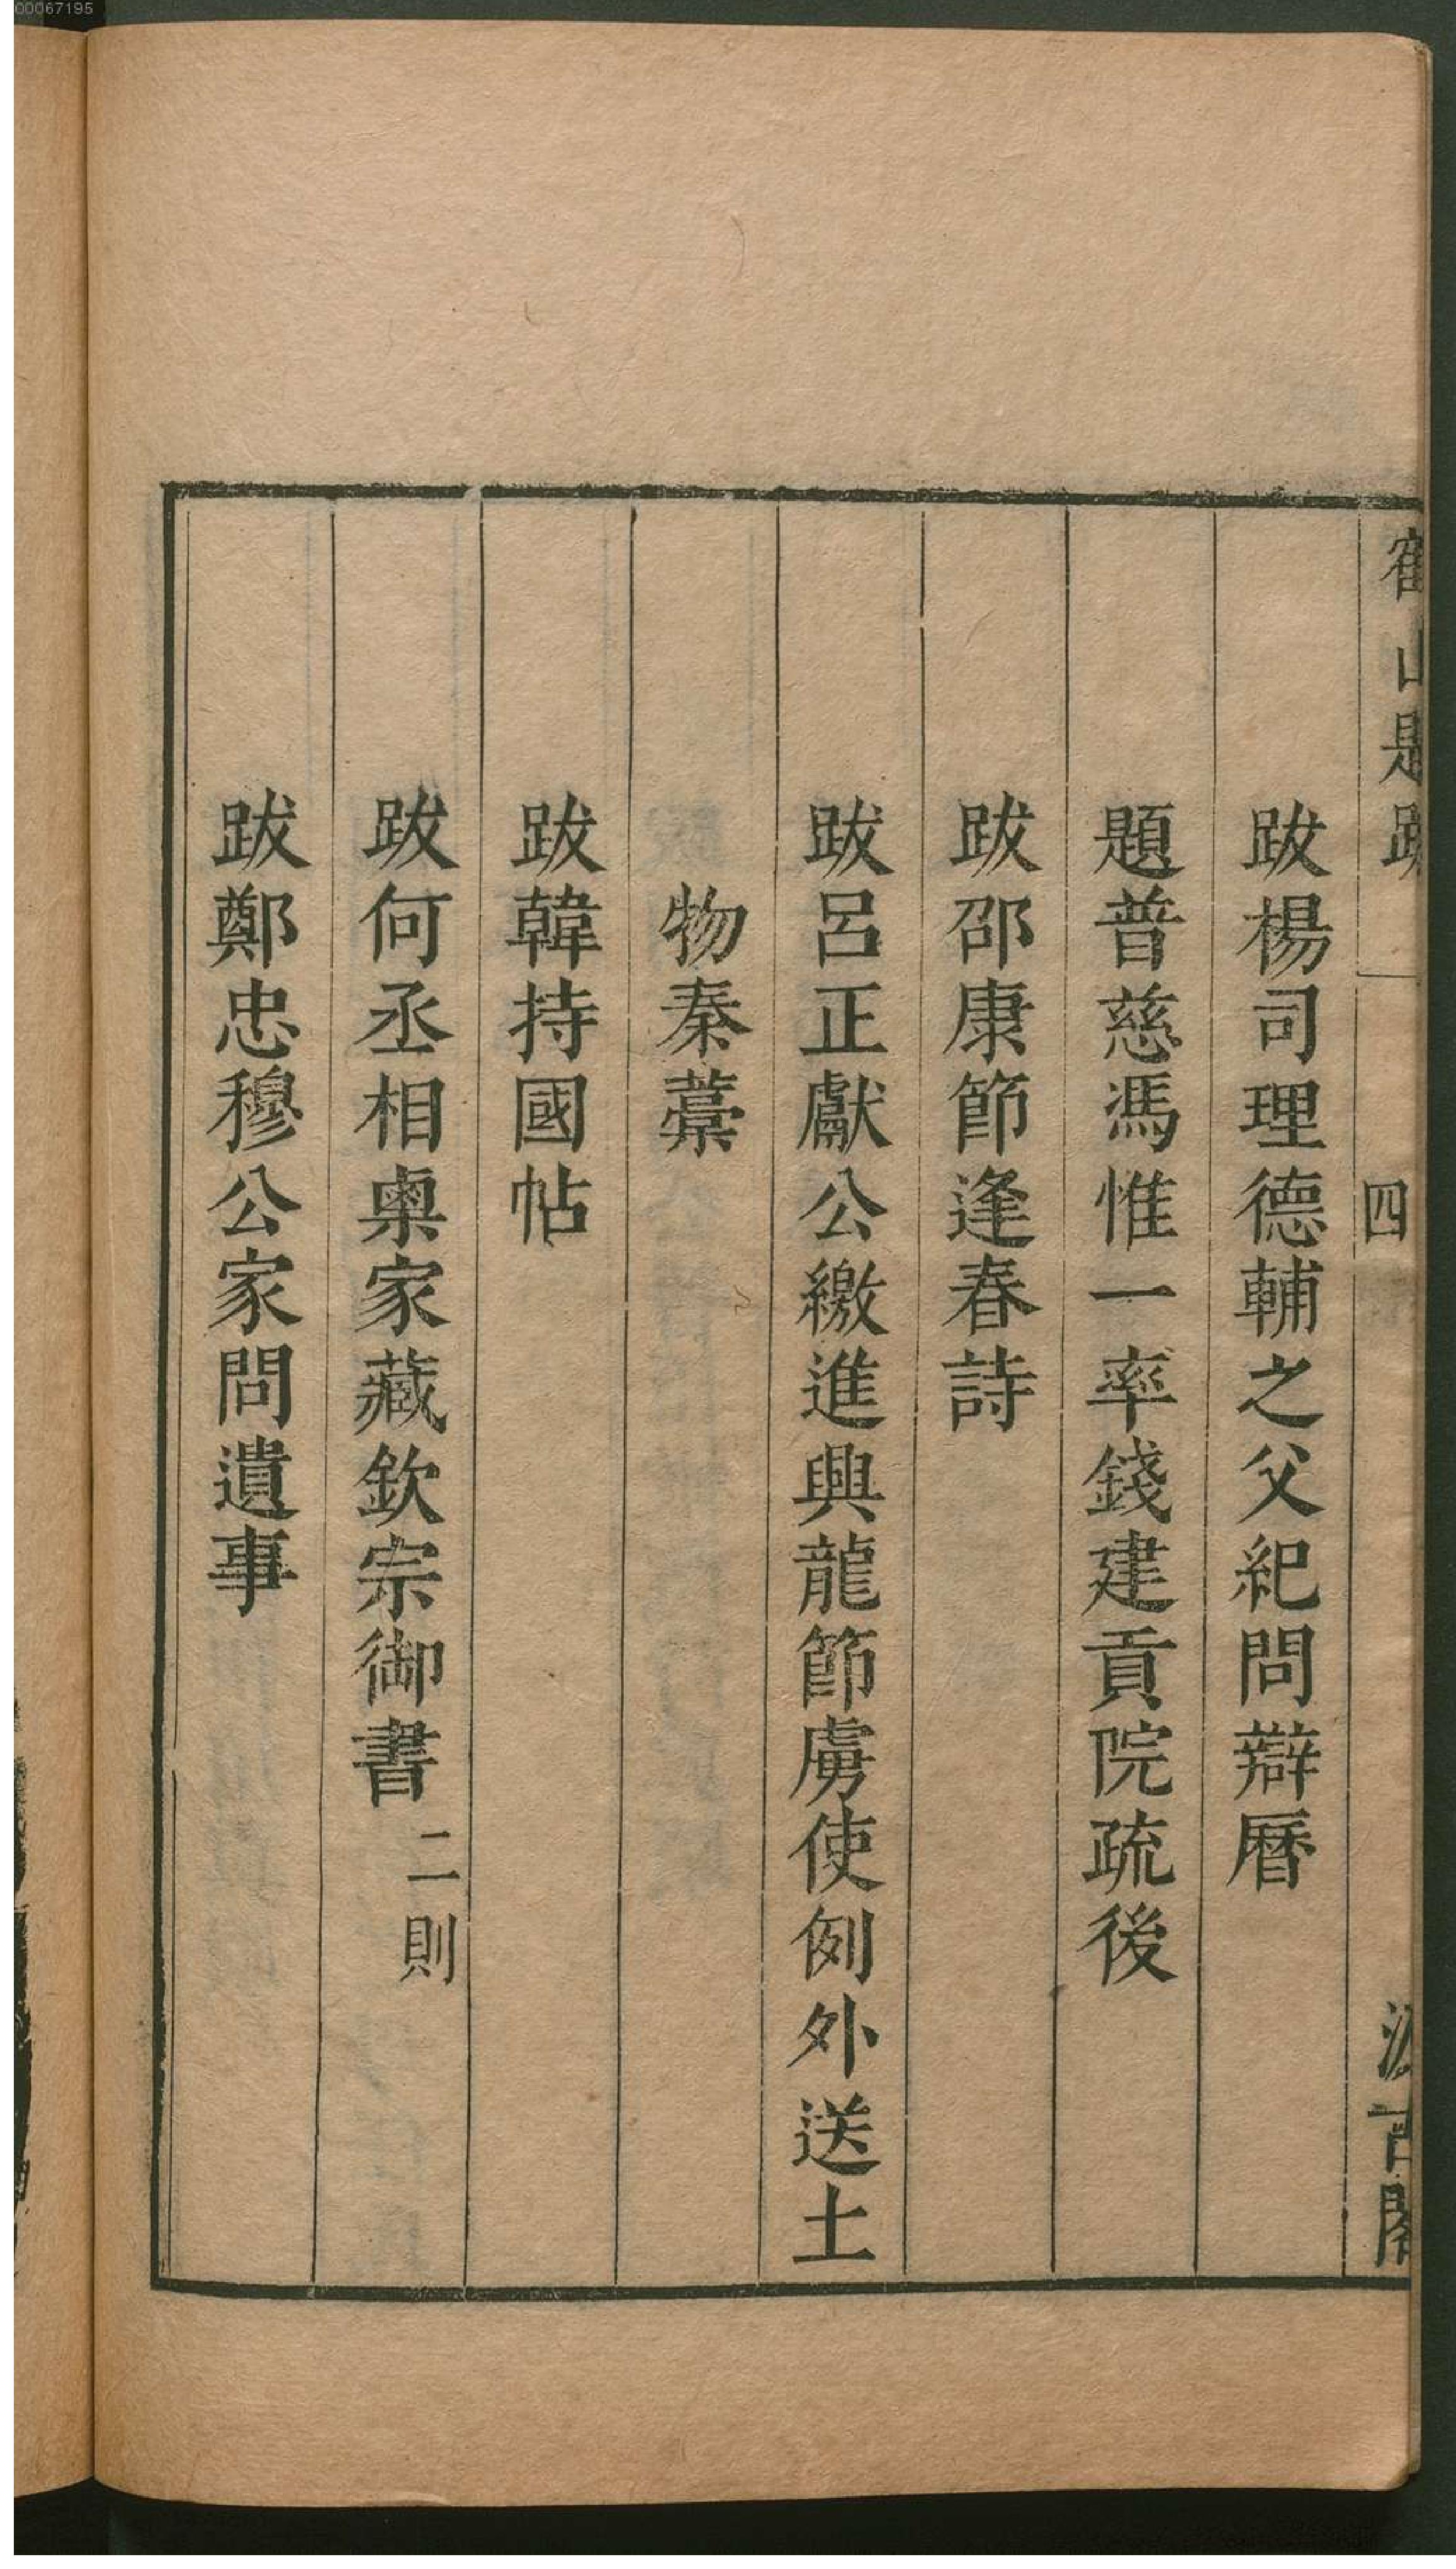 00067195
山
四
跋楊司理德輔之父紀問辯曆
題普慈馮惟一率錢建貢院疏後
跋邵康節逢春詩
跋呂正獻公繳進興龍節虜使例外送土
物秦藁
跋韓持國帖
跋何丞相㮚家藏欽宗御書二則
跋鄭忠穆公家問遺事